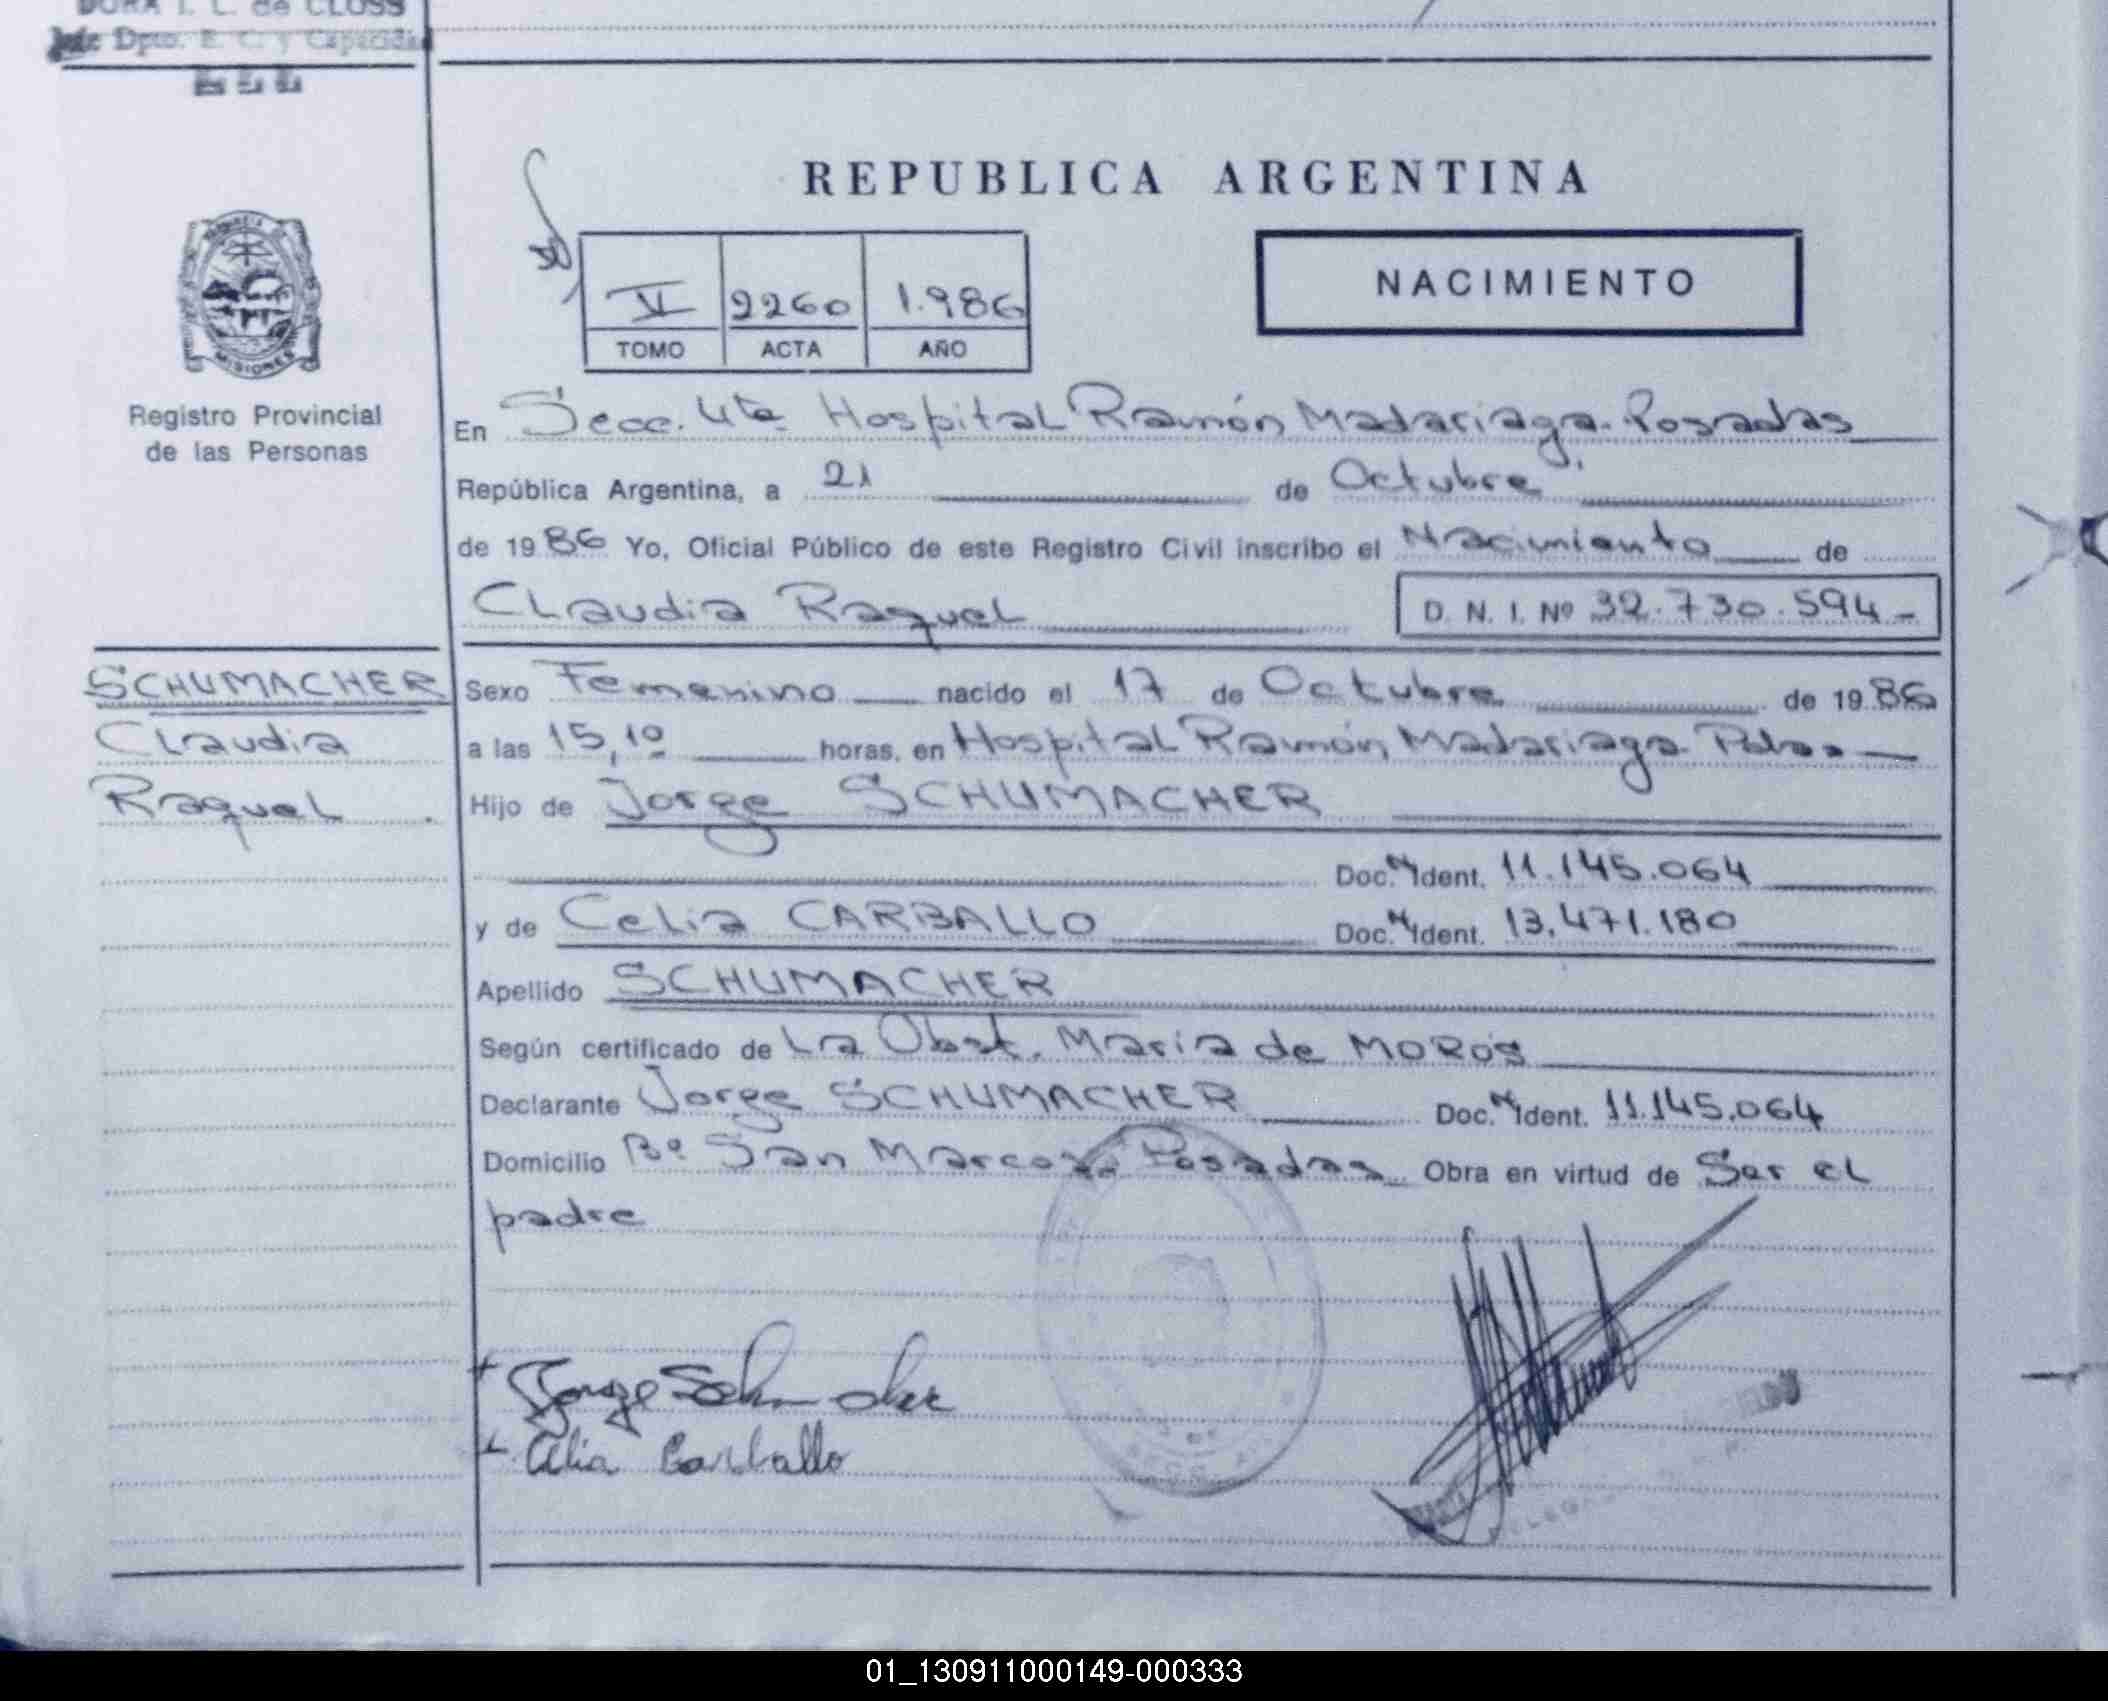 DORA I. L. de CLOSS
Jefe Dpto. E. C. y Capacidad
REPUBLICA ARGENTINA
NACIMIENTO
V 2260 1.986
TOMO ACTA AÑO
MISIONES
Registro Provincial
de las Personas
En Secc. 4ta Hospital Ramón Madariaga - Posadas
República Argentina, a 21 de Octubre
de 1986 Yo, Oficial Público de este Registro Civil inscribo el Nacimiento de
Claudia Raquel D. N. I. Nº 32.730.594-
SCHUMACHER
Claudia
Raquel
Sexo Femenino nacido el 17 de Octubre de 1986
a las 15,10 horas, en Hospital Ramón Madariaga
Hijo de Jorge SCHUMACHER
Doc. N. Ident. 11.145.064
y de Celia CARBALLO Doc. N. Ident. 13.471.180
Apellido SCHUMACHER
Según certificado de La Obst. María de MOROS
Declarante Jorge SCHUMACHER Doc. N. Ident. 11.145.064
Domicilio Bº San Marcos - Posadas Obra en virtud de Ser el
padre
Jorge Schumacher
Celia Carballo
01_130911000149-000333